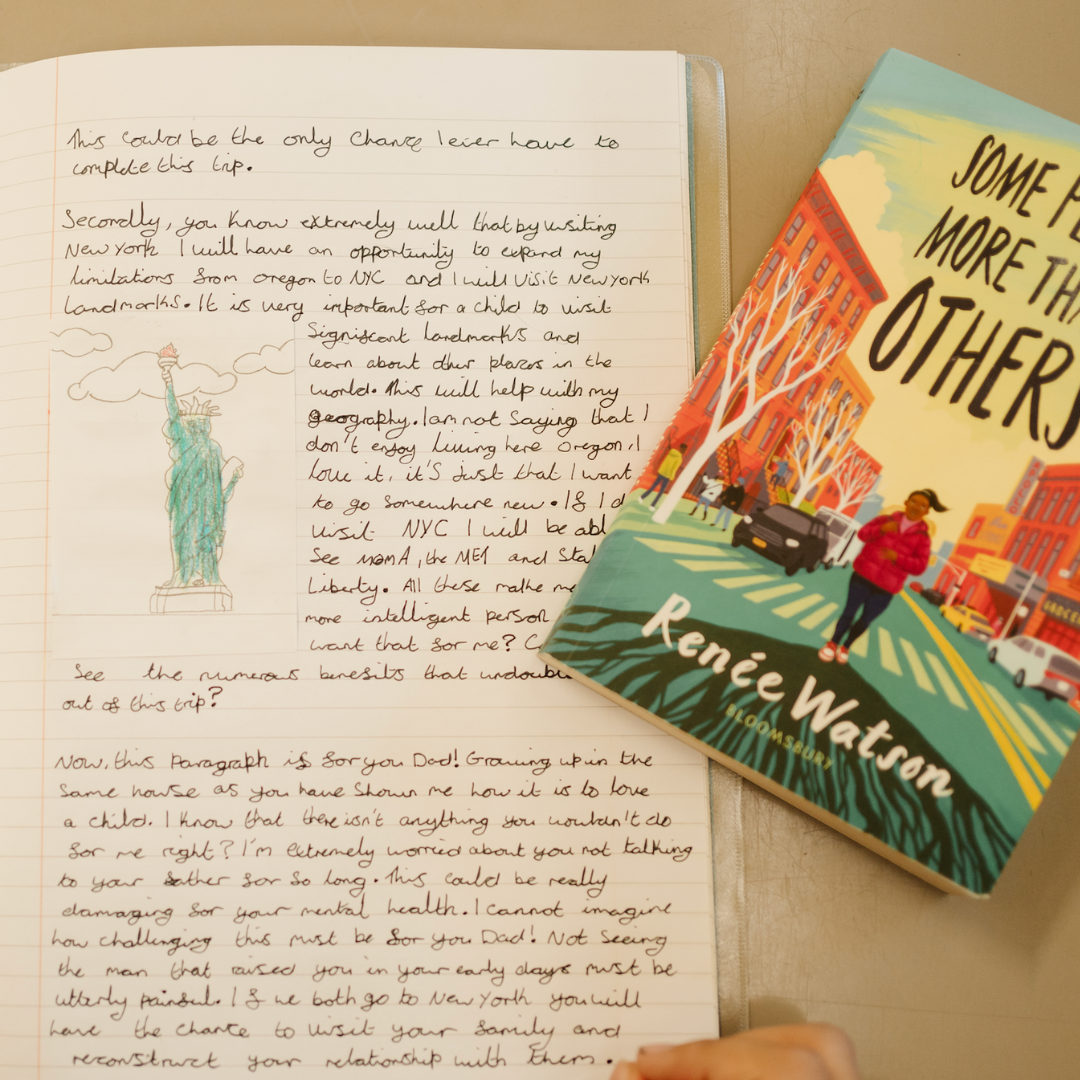 This could be the only Chance I ever have to
complete this trip.
Secondly, you know extremely well that by visiting
New York I will have an opportunity to expand my
limitations from oregon to NYC and I will visit New York
landmarks. It is very important for a child to visit
Significant landmarks and
learn about other places in the
world. This will help with my
geography. I am not Saying that I
don't enjoy living here Oregon. I
love it, it's just that I want
to go somewhere new. If I d
visit NYC I will be abl
See momA, the MET and Sta
Liberty. All these mathe me
more intelligent person
want that for me? C
See the numerous benefits that undoub
out of this trip?
Now, this Paragraph is for you Dad! Growing up in the
Same house as you have Shown me how it is to love
a child. I know that there isn't anything you wouldn't do
for me right? I'm extremely worried about you not talking
to your father for So long. This could be really
damaging for your mental health. I cannot imagine
how challenging this must be for you Dad! Not Seeing
the man that raised you in your early days must be
utterly painful. If we both go to New York you will
have the chance to visit your family and
reconstruct your relationship with them.
SOME PE
MORE THA
OTHERS
Renée Watson
BLOOMSBURY